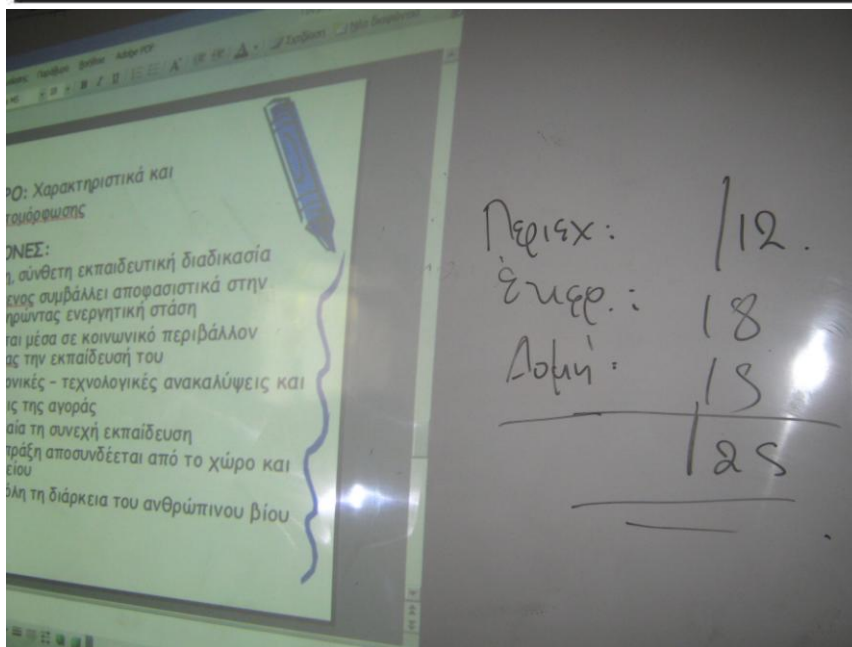 Προβολή Εργαλεία Adobe PDF
Σχεδίαση Νέα διαφάνεια
ΡΟ: Χαρακτηριστικά και
τομόρφωσης
ΟΝΕΣ:
η, σύνθετη εκπαιδευτική διαδικασία
ενος συμβάλλει αποφασιστικά στην
ηρώντας ενεργητική στάση
ται μέσα σε κοινωνικό περιβάλλον
ας την εκπαίδευσή του
ονικές - τεχνολογικές ανακαλύψεις και
ις της αγοράς
αία τη συνεχή εκπαίδευση
πράξη αποσυνδέεται από το χώρο και
είου
όλη τη διάρκεια του ανθρώπινου βίου
Περιεχ: /12.
Έκφρ.: /8
Δομή: /5
/25